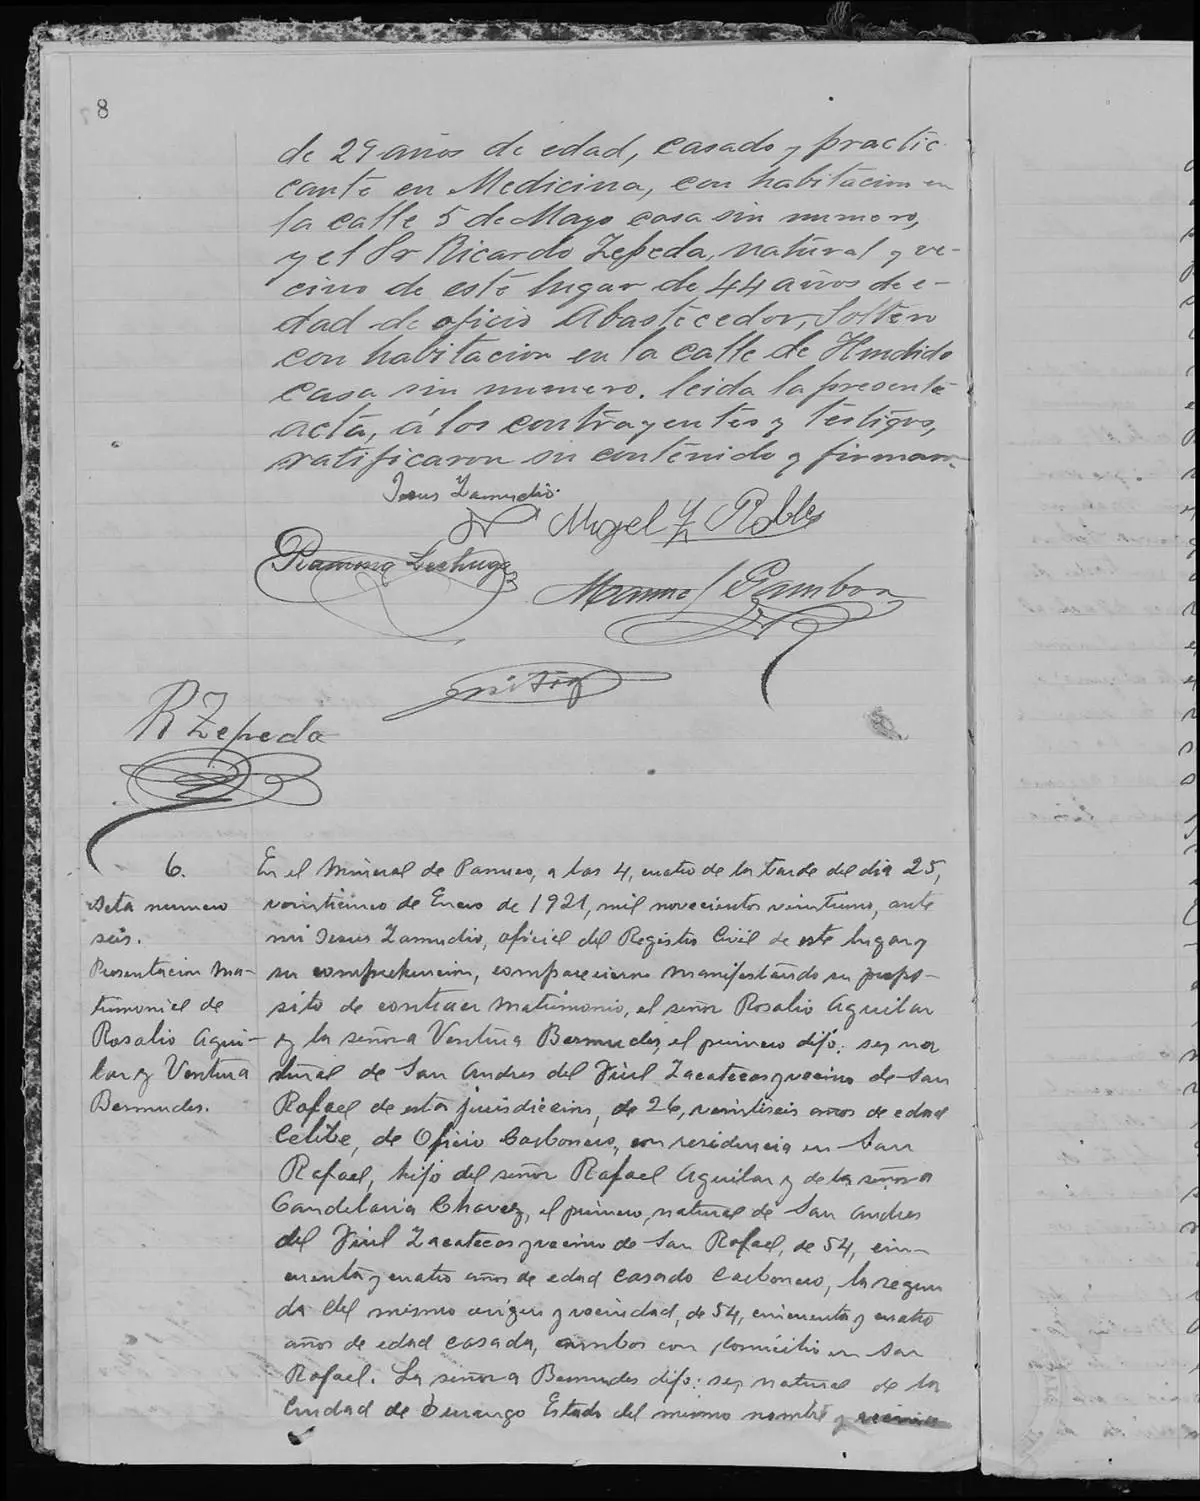 8
de 29 años de edad, casado y practic
cante en Medicina, con habitacion en
la calle 5 de Mayo casa sin numero,
y el Sr Ricardo Zepeda, natural y ve-
cino de este lugar de 44 años de e-
dad de oficio Abastecedor, Soltero
con habitacion en la calle de Hundido
casa sin numero. leida la presente
acta, á los contrayentes y testigos,
ratificaron su contenido y firman.
Jesus Zamudio.
Migel Robles
Ramona Lechuga
Manuel Gambon
R Zepeda
6.
Acta numero
seis.
Presentacion Ma-
trimonial de
Rosalio Agui-
lar y Ventura
Bermudes.
En el Mineral de Panuco, a las 4, cuatro de la tarde del dia 25,
veinticinco de Enero de 1921, mil novecientos veintiuno, ante
mi Jesus Zamudio, oficial del Registro Civil de este lugar y
su comprehencion, comparecieron manifestando su propo-
sito de contraer matrimonio, el señor Rosalio Aguilar
y la señora Ventura Bermudes, el primero dijo: ser na
tural de San Andres del Teul Zacatecas y vecino de San
Rafael de esta jurisdiccion, de 26, veintiseis años de edad
Celibe, de Oficio Carbonero, con residencia en San
Rafael, hijo del señor Rafael Aguilar y de la señora
Candelaria Chavez, el primero, natural de San Andres
del Teul Zacatecas y vecino de San Rafael, de 54, cin-
cuenta y cuatro años de edad casado Carbonero, la segun
da del mismo origen y vecindad, de 54, cincuenta y cuatro
años de edad casada, ambos con domicilio en San
Rafael. La señora Bermudes dijo: ser natural de la
Ciudad de Durango Estado del mismo nombre y